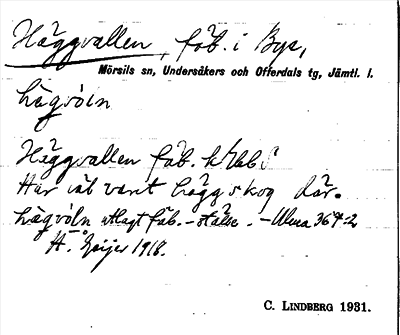 Häggvallen, fäb. i Bye,
Mörsils sn, Undersåkers och Offerdals tg, Jämtl. l.
hägvóln
Häggvallen fäb.
Här väl varit häggskog där.
hägvóln utlagt fäb.-ställe. - Ulma 367:2
H. Geijer 1918.
C. LINDBERG 1931.